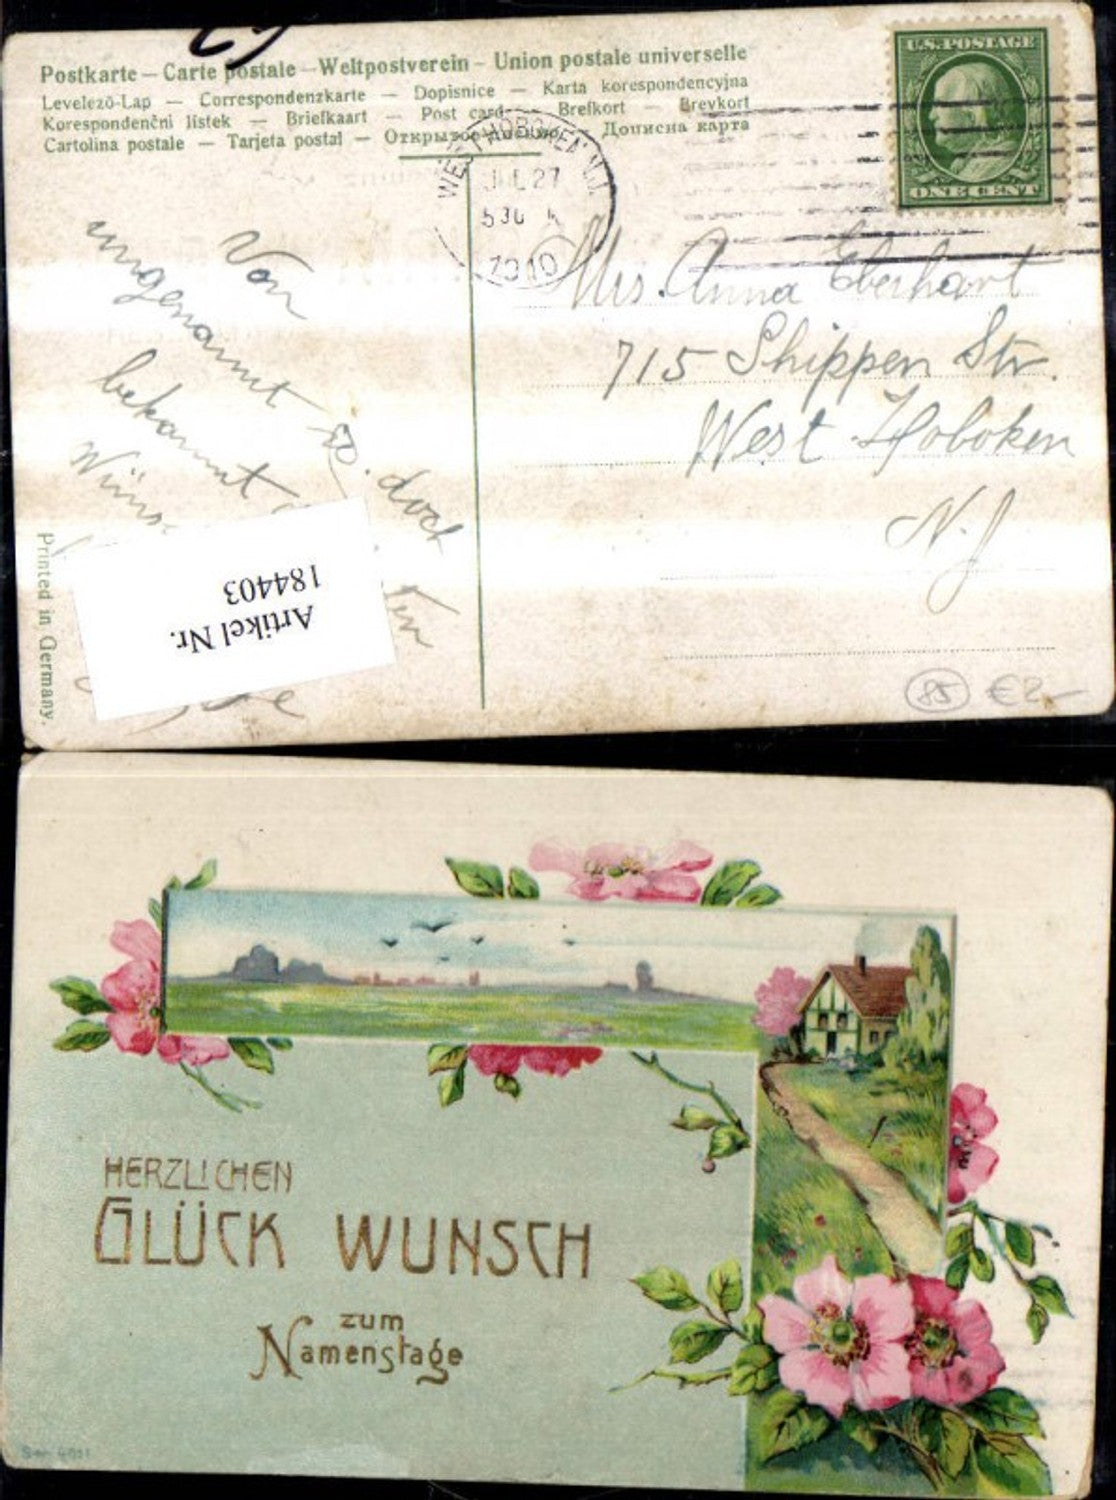 Postkarte – Carte postale – Weltpostverein – Union postale universelle
Levelező-Lap — Correspondenzkarte — Dopisnice — Karta korespondencyjna
Korespondenční lístek — Briefkaart — Post card — Brefkort — Brevkort
Cartolina postale — Tarjeta postal — Открытое письмо — Дописна карта
U.S. POSTAGE
ONE CENT
WEST HOBOKEN N.J.
JUL 27
530
1910
Von
ungenannt
doch
bekannt
Mrs. Anna Eberhart
715 Shippen Str.
West Hoboken
N.J
Printed in Germany.
Artikel Nr.
184403
85 €2-
HERZLICHEN
GLÜCK WUNSCH
zum
Namenstage